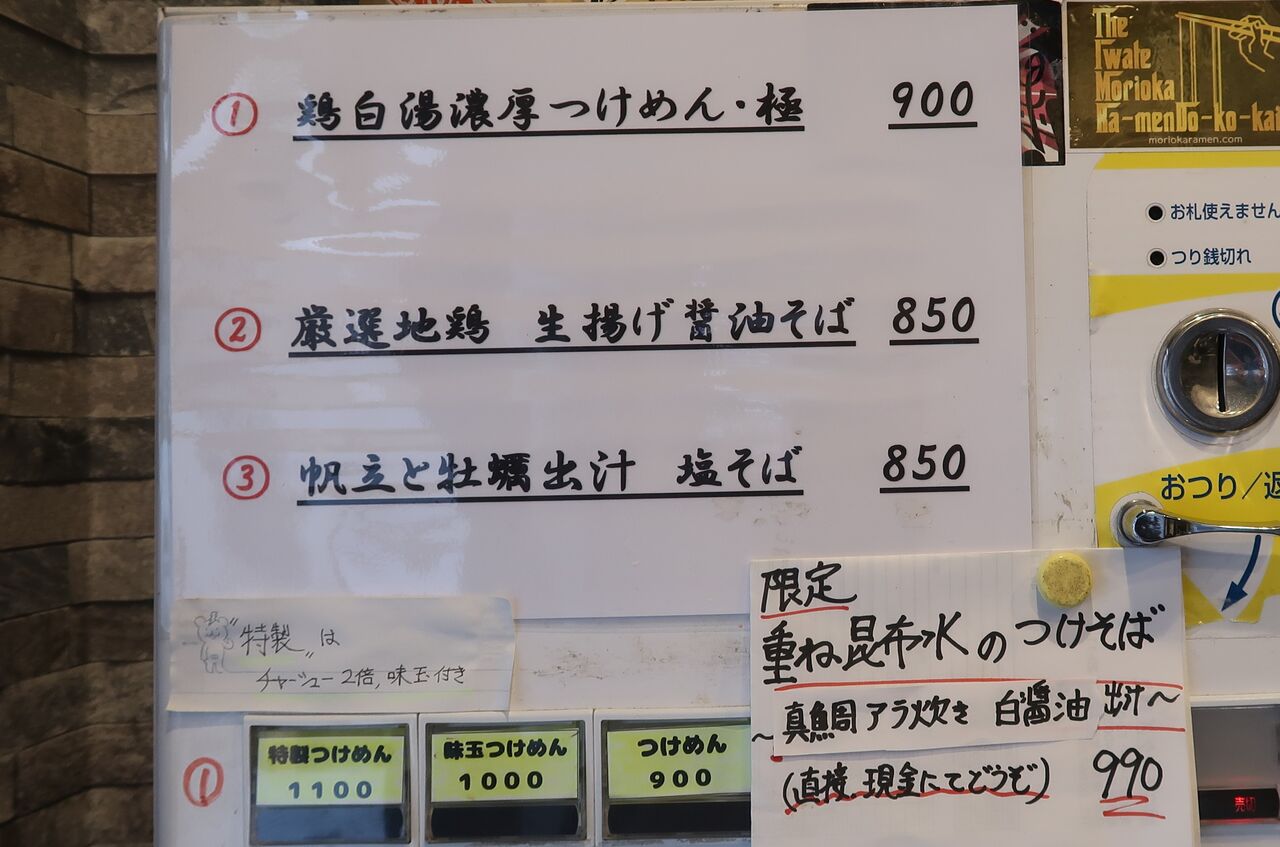 ① 鶏白湯濃厚つけめん・極 900
② 厳選地鶏 生揚げ醤油そば 850
③ 帆立と牡蠣出汁 塩そば 850
"特製"は
チャーシュー2倍,味玉付き
① 特製つけめん 味玉つけめん つけめん
1100 1000 900
限定
重ね昆布水のつけそば
~真鯛アラ炊き 白醤油出汁~
(直接現金にてどうぞ) 990
The
Iwate
Morioka
Ra-menDo-ko-kai
moriokaramen.com
お札使えません
つり銭切れ
おつり/返
売切